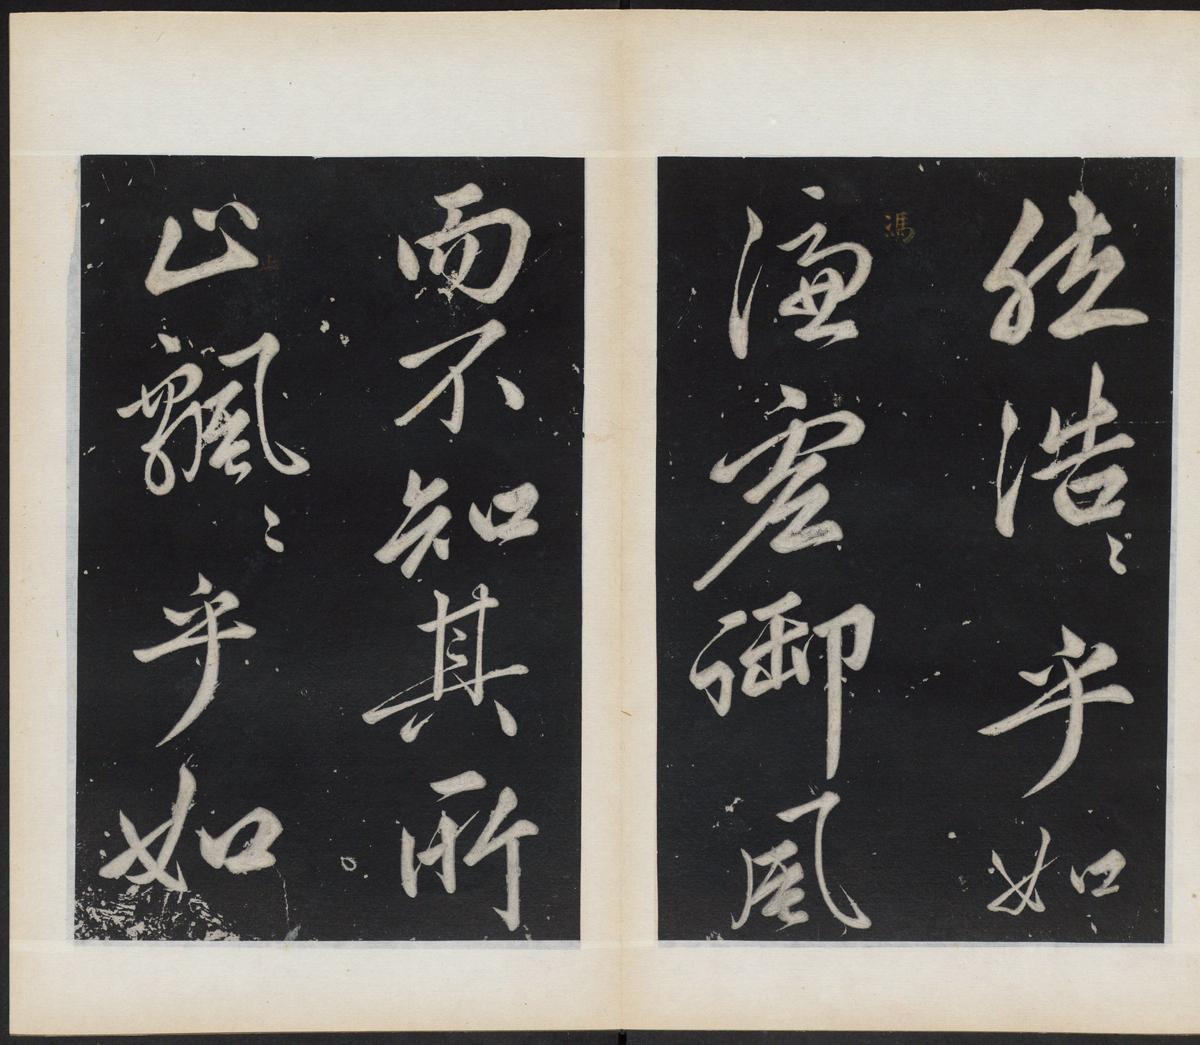 然浩〻乎如
馮
馮虛御風
而不知其所
止飄〻乎如